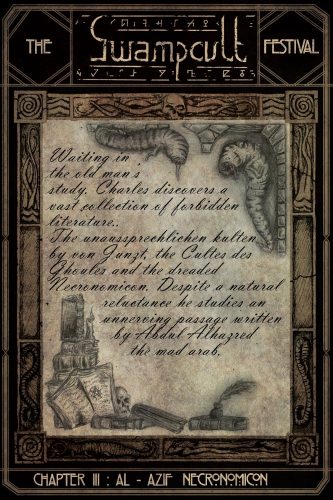 THE Swampcult FESTIVAL
Waiting in
the old man's
study, Charles discovers a
vast collection of forbidden
literature..
The unaussprechlichen kulten
by von Junzt, the Cultes des
Ghoules and the dreaded
Necronomicon. Despite a natural
reluctance he studies an
unnerving passage written
by Abdul Alhazred
the mad arab.
CHAPTER III : AL - AZIF NECRONOMICON